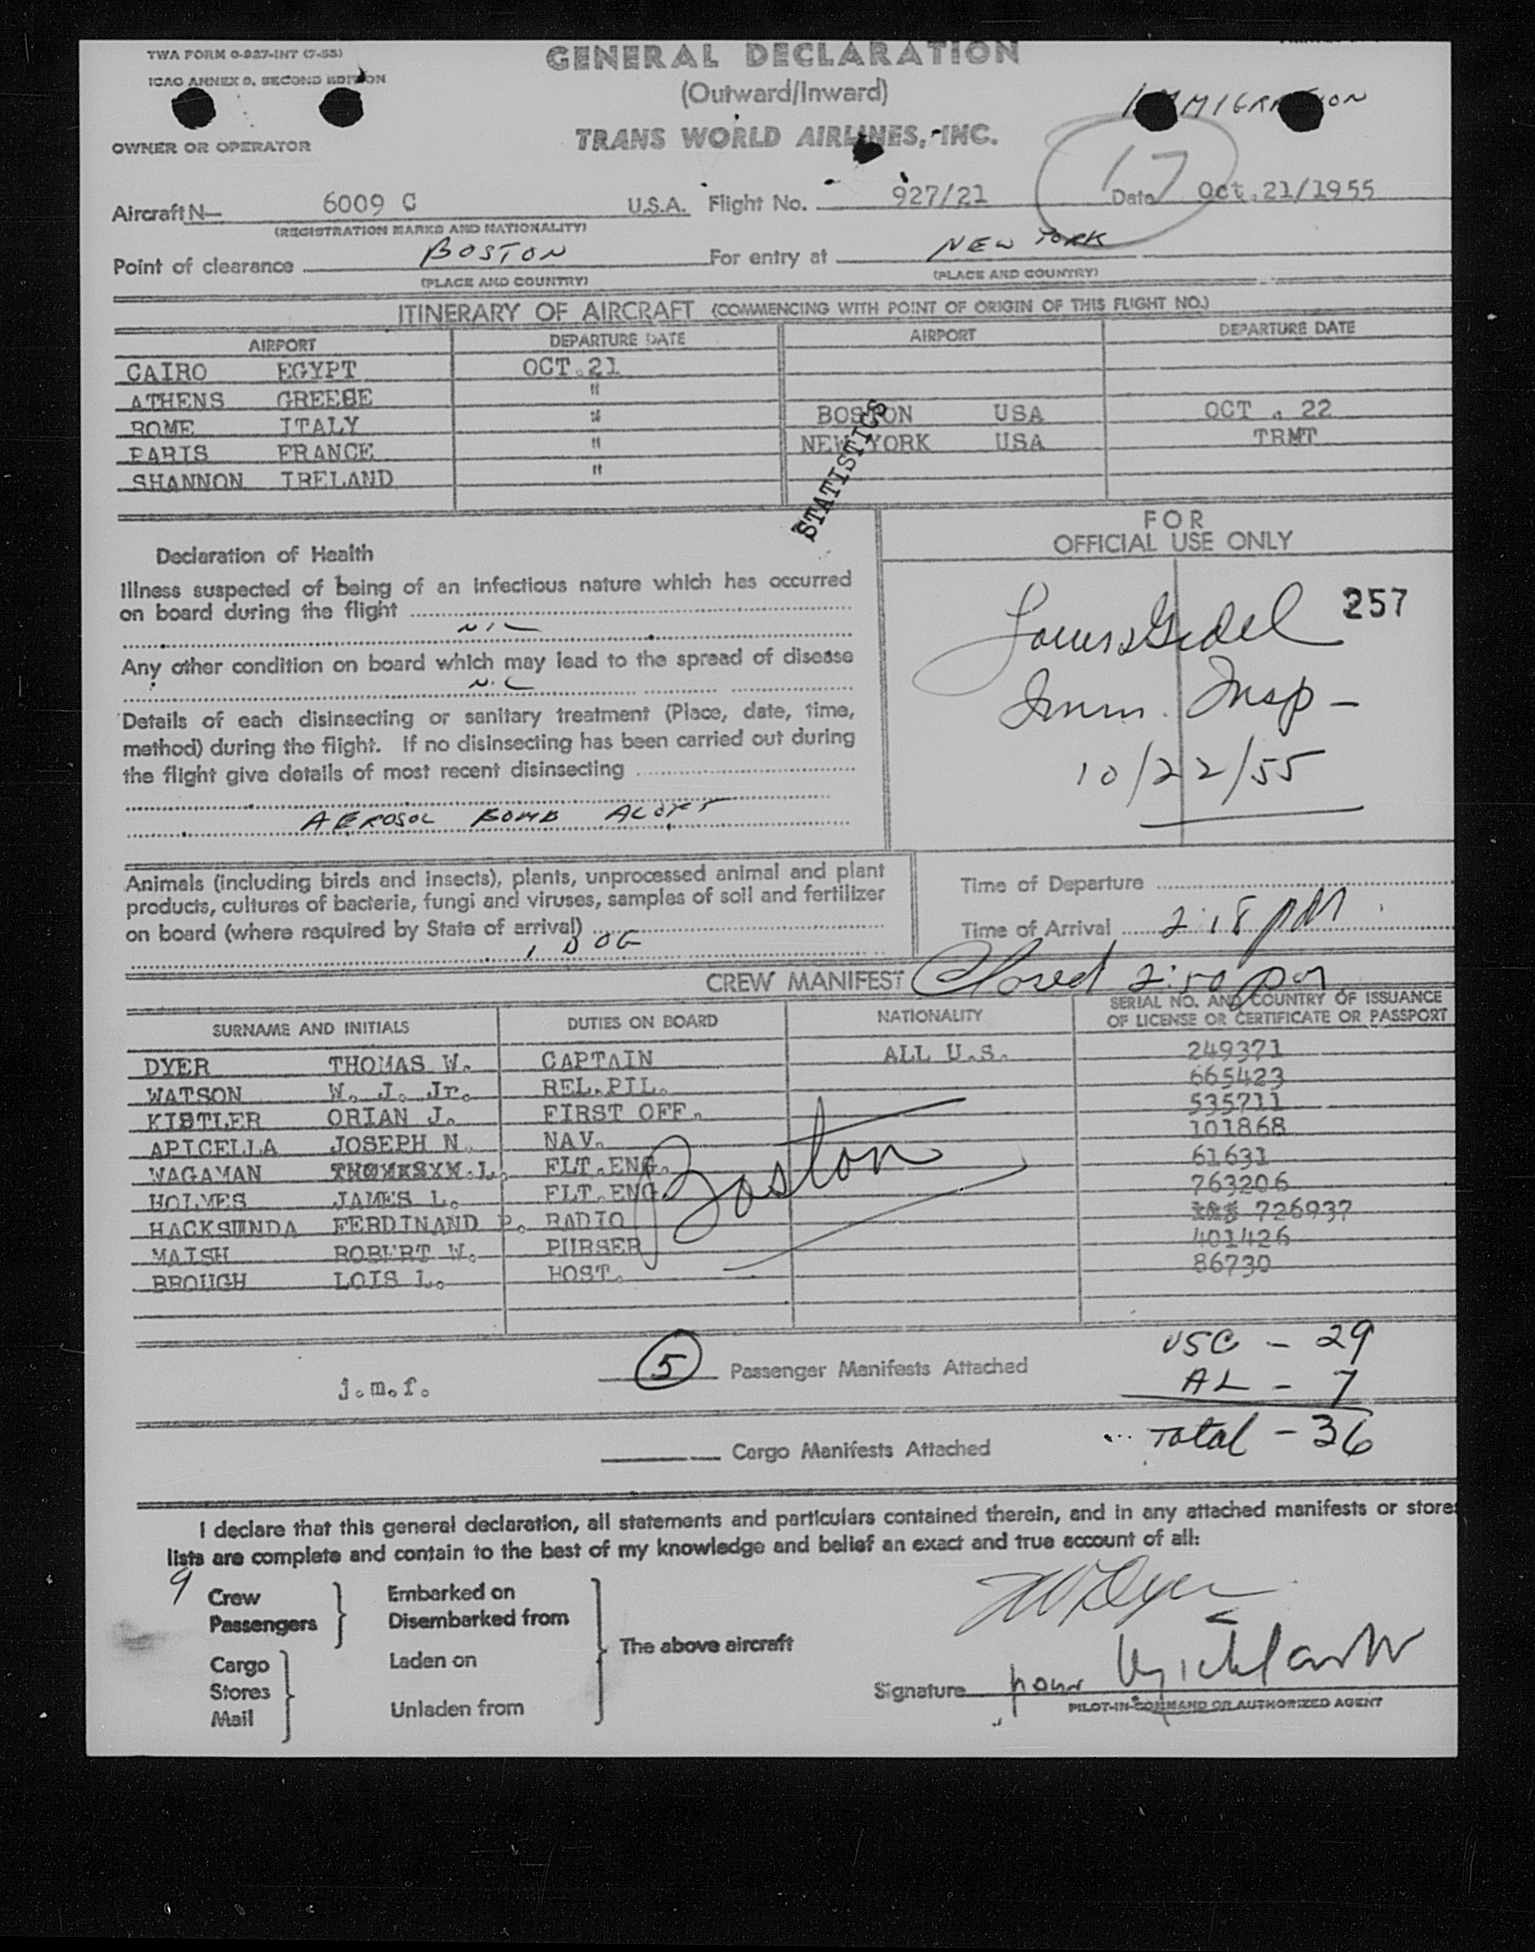 TWA FORM O-927-INT (7-55)
ICAO ANNEX 9, SECOND EDITION
GENERAL DECLARATION
(Outward/Inward)
IMMIGRATION
OWNER OR OPERATOR
TRANS WORLD AIRLINES, INC.
17
Aircraft N— 6009 C U.S.A. Flight No. 927/21 Date Oct.21/1955
(REGISTRATION MARKS AND NATIONALITY)
Point of clearance BOSTON For entry at NEW YORK
(PLACE AND COUNTRY) (PLACE AND COUNTRY)
ITINERARY OF AIRCRAFT (COMMENCING WITH POINT OF ORIGIN OF THIS FLIGHT NO.)
AIRPORT DEPARTURE DATE AIRPORT DEPARTURE DATE
CAIRO EGYPT OCT.21
ATHENS GREECE "
ROME ITALY " BOSTON USA OCT . 22
PARIS FRANCE " NEW YORK USA TRMT
SHANNON IRELAND "
STATISTICS
FOR
OFFICIAL USE ONLY
Declaration of Health
Illness suspected of being of an infectious nature which has occurred
on board during the flight
NIL
Any other condition on board which may lead to the spread of disease
NIL
Details of each disinsecting or sanitary treatment (Place, date, time,
method) during the flight. If no disinsecting has been carried out during
the flight give details of most recent disinsecting
AEROSOL BOMB ALOFT
257
Imm. Insp -
10/22/55
Animals (including birds and insects), plants, unprocessed animal and plant
products, cultures of bacteria, fungi and viruses, samples of soil and fertilizer
on board (where required by State of arrival)
1 DOG
Time of Departure
Time of Arrival 2:18 pm
CREW MANIFEST Closed 2:50 pm
SURNAME AND INITIALS DUTIES ON BOARD NATIONALITY SERIAL NO. AND COUNTRY OF ISSUANCE
OF LICENSE OR CERTIFICATE OR PASSPORT
DYER THOMAS W. CAPTAIN ALL U.S. 249371
WATSON W. J. Jr. REL.PIL. 665423
KISTLER ORIAN J. FIRST OFF. 535711
APICELLA JOSEPH N. NAV. 101868
WAGAMAN L. FLT.ENG. 61631
HOLMES JAMES L. FLT.ENG. 763206
HACKSUNDA FERDINAND P. RADIO 726937
MAISH ROBERT W. PURSER 401426
BROUGH LOIS L. HOST. 86730
Boston
USC - 29
j.m.f. 5 Passenger Manifests Attached
AL - 7
Cargo Manifests Attached
Total - 36
I declare that this general declaration, all statements and particulars contained therein, and in any attached manifests or stores
lists are complete and contain to the best of my knowledge and belief an exact and true account of all:
9 Crew Embarked on
Passengers Disembarked from
The above aircraft
Cargo Laden on
Stores
Mail Unladen from
TW Dyer
Signature
PILOT-IN-COMMAND OR AUTHORIZED AGENT